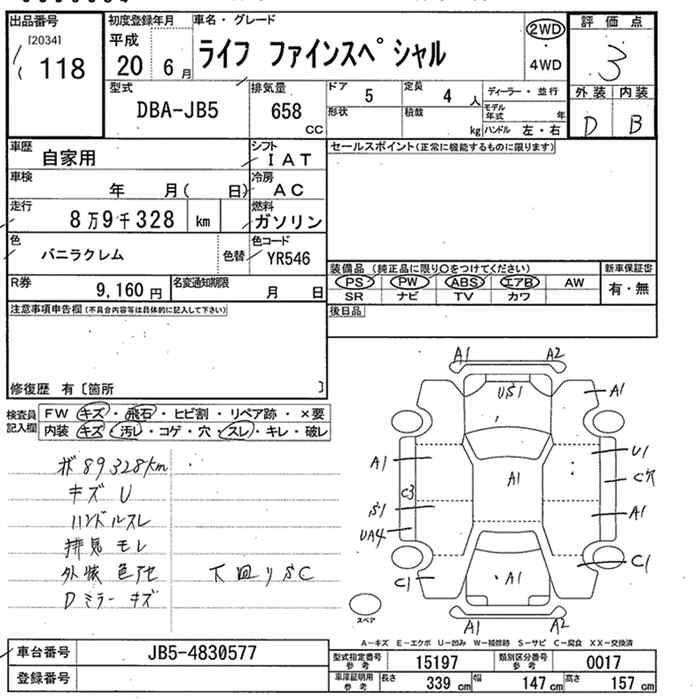 出品番号
[2034]
118
初度登録年月
平成
20 6月
車名・グレード
ライフ ファインスペシャル
2WD
・
4WD
評価点
3
外装 内装
D B
型式
DBA-JB5
排気量
658
CC
ドア
5
定員
4 人
形状
積載
kg
ディーラー・並行
モデル年式 年
ハンドル 左・右
車歴
自家用
シフト
IAT
車検
年 月( 日)
冷房
AC
走行
8万9千328 km
燃料
ガソリン
色
バニラクレム
色替
色コード
YR546
R券
9,160円
名変通知期限
月 日
セールスポイント(正常に機能するものに限ります)
装備品 (純正品に限り○をつけてください)
PS PW ABS エアB AW
SR ナビ TV カワ
新車保証書
有・無
後日品
注意事項申告欄(不具合内容等は具体的に記入して下さい)
修復歴 有〔箇所 〕
検査員記入欄
FW キズ・飛石・ヒビ割・リペア跡・×要
内装 キズ・汚レ・コゲ・穴・スレ・キレ・破レ
ボ 89328km
キズ U
ハンドルスレ
排気モレ
外装色アセ
Dミラーキズ
下回りSC
A1 A2
US1
A1
A1
A1
U1
C穴
C3
S1
A1
UA4
C1
C1
A1
A1 A2
スペア
A-キズ E-エクボ U-凹み W-補修跡 S-サビ C-腐食 XX-交換済
車台番号
JB5-4830577
登録番号
型式指定番号参考
15197
類別区分番号参考
0017
車庫証明用参考
長さ 339 cm
幅 147 cm
高さ 157 cm